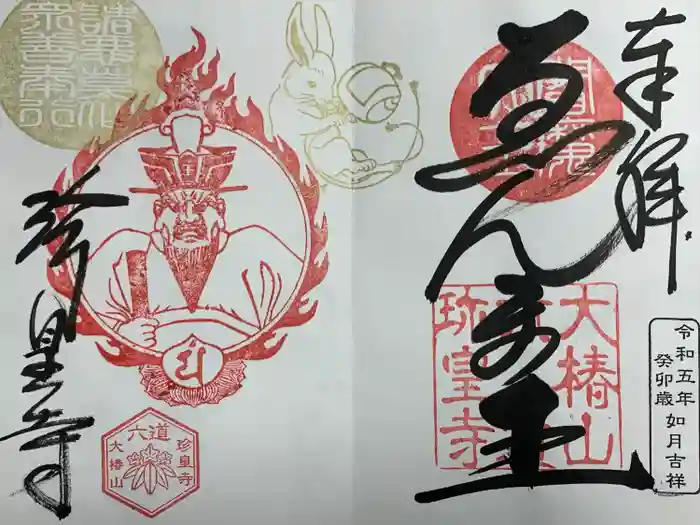 奉拝
ゑんま王
令和五年
癸卯歳 如月吉祥
大椿山
六道
珍皇寺
閻魔
珍皇寺
諸悪莫作
衆善奉行
六道
珍皇寺
大椿山